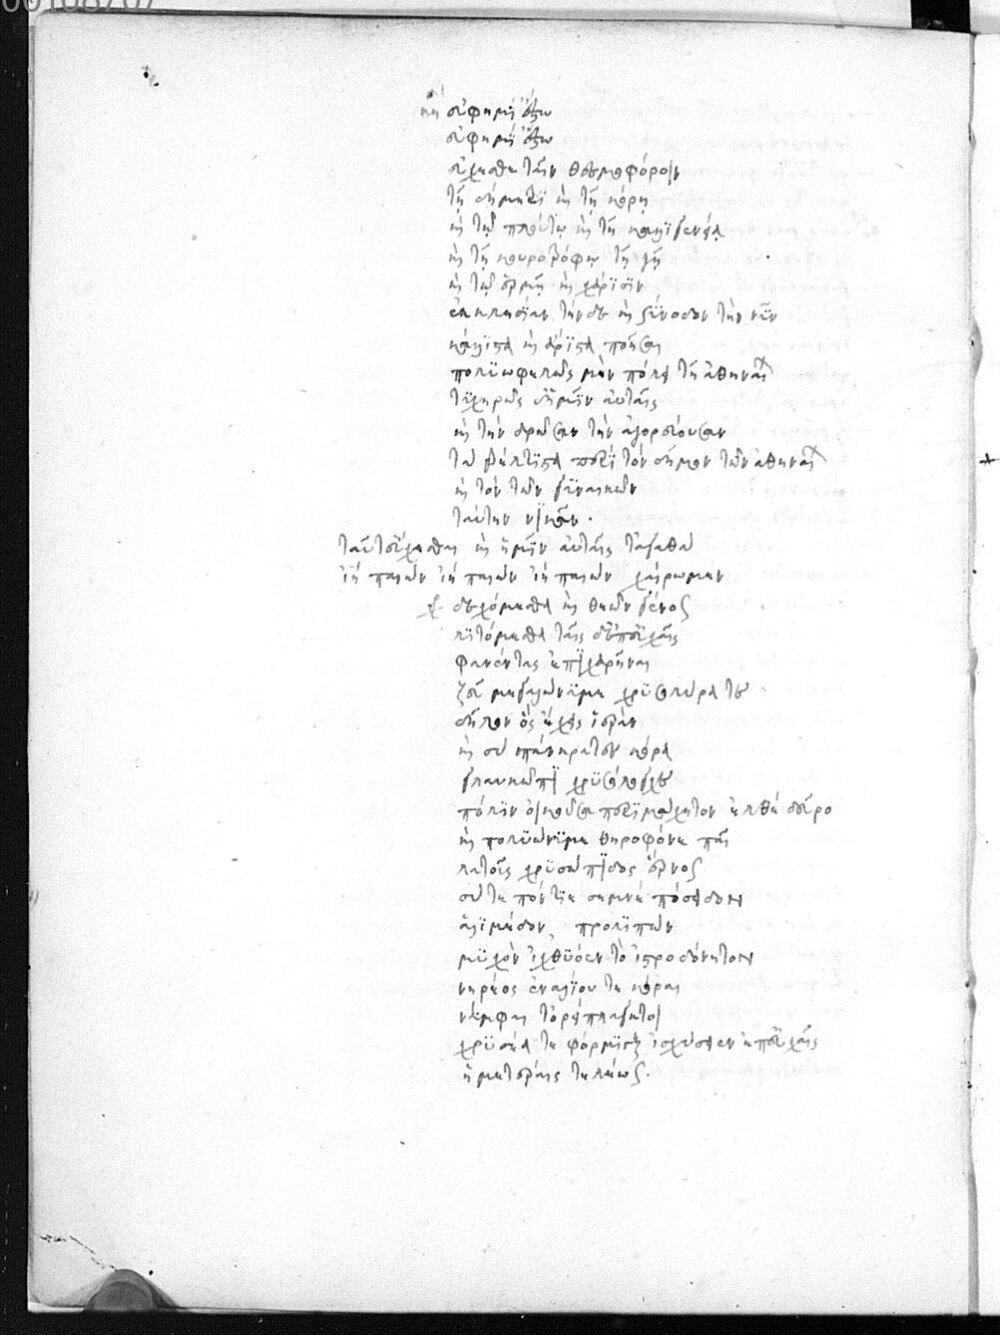 εὐφημία ἔστω
εὐφημία ἔστω
εὔχεσθε ταῖν θεσμοφόροιν
τῇ δήμητρι καὶ τῇ κόρῃ
καὶ τῷ πλούτῳ καὶ τῇ καλλιγενείᾳ
καὶ τῇ κουροτρόφῳ τῇ γῇ
καὶ τῷ ἑρμῇ καὶ χάρισιν
ἐκκλησίαν τήνδε καὶ ξύνοδον τὴν νῦν
κάλλιστα καὶ ἄριστα ποιῆσαι
πολυωφελῶς μὲν πόλει τῇ ἀθηναίων
τυχηρῶς δ' ἡμῖν αὐταῖς
καὶ τὴν δρῶσαν τὴν ἀγορεύουσαν
τὰ βέλτιστα περὶ τὸν δῆμον τῶν ἀθηναίων
καὶ τὸν τῶν γυναικῶν
ταύτην νικᾶν.
ταῦτ' εὔχεσθε καὶ ἡμῖν αὐταῖς τἀγαθά
ἰὴ παιὼν ἰὴ παιὼν ἰὴ παιών χαίρωμεν
δεχόμεθα καὶ θεῶν γένος
λιτόμεθα ταῖς δ' ἐπ' εὐχαῖς
φανέντας ἐπιχαρῆναι
ζεῦ μεγαλώνυμε χρυσολύρα τε
δῆλον ὃς ἔχεις ἱεράν
καὶ σὺ παγκρατὲς κόρα
γλαυκῶπι χρυσόλογχε
πόλιν οἰκοῦσα περιμάχητον ἐλθὲ δεῦρο
καὶ πολυώνυμε θηροφόνη παῖ
λατοῦς χρυσώπιδος ἔρνος
σύ τε πόντιε σεμνὲ πόσειδον
ἁλιμέδον, προλιπών
μυχὸν ἰχθυόεντ' οἰστροδόνητον
νηρέος εἰναλίου τε κόραι
νύμφαι τ' ὀρείπλαγκτοι
χρυσέα τε φόρμιγξ ἰαχήσειεν ἐπ' εὐχαῖς
ἡμετέραις τελέως.